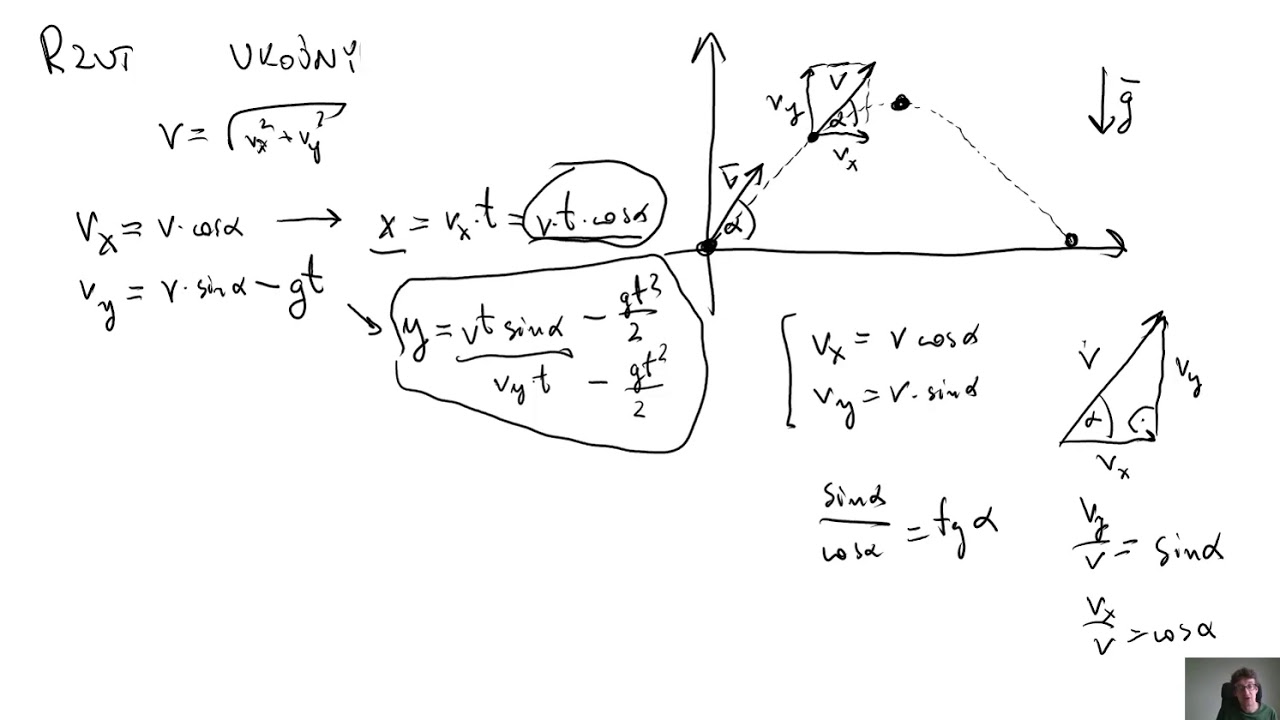 RZUT UKOŚNY
v = √(vx² + vy²)
vx = v · cosα → x = vx · t = v · t · cosα
vy = v · sinα − gt
y = vt sinα − gt²/2
vy · t − gt²/2
v
vy
α
vx
v
α
g
vx = v cosα
vy = v · sinα
v
vy
α
vx
sinα/cosα = tg α
vy/v = sinα
vx/v = cosα